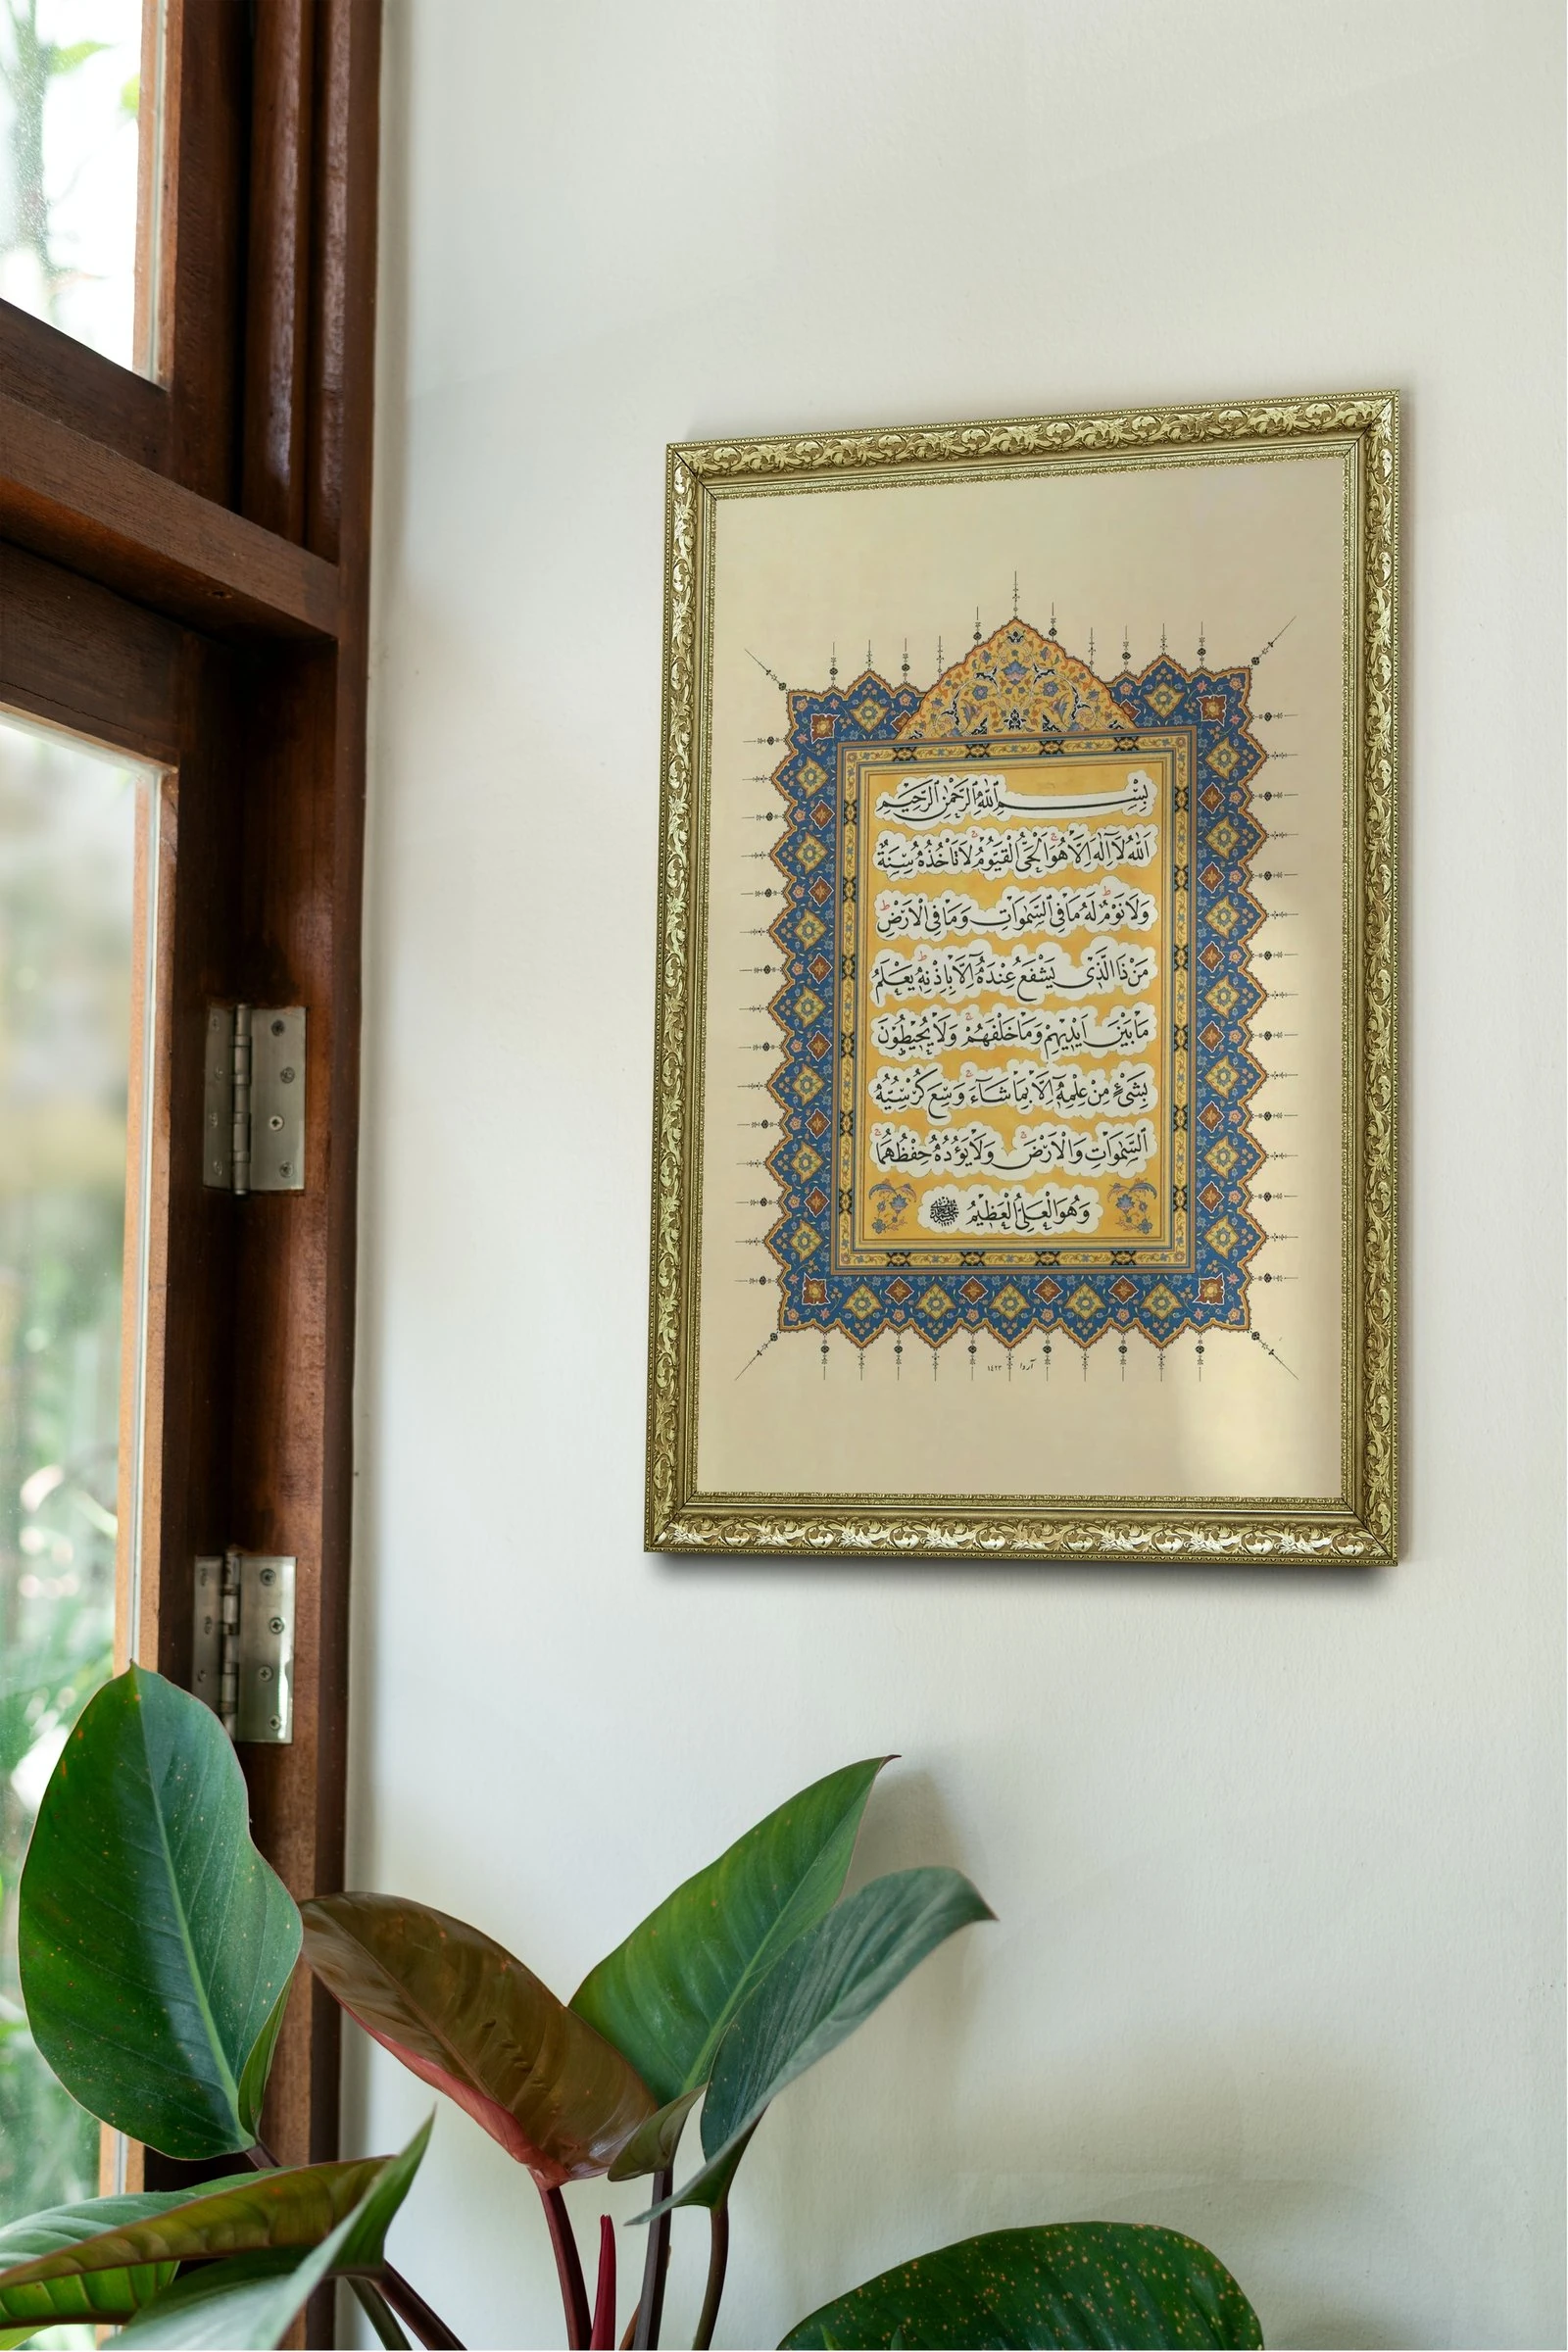 بِسْمِ اللّٰهِ الرَّحْمٰنِ الرَّحِيمِ
اَللّٰهُ لَٓا اِلٰهَ اِلَّا هُوَ اَلْحَيُّ الْقَيُّومُ لَا تَأْخُذُهُ سِنَةٌ
وَلَا نَوْمٌ لَهُ مَا فِي السَّمٰوَاتِ وَمَا فِي الْاَرْضِ
مَنْ ذَا الَّذِي يَشْفَعُ عِنْدَهُٓ اِلَّا بِاِذْنِهِ يَعْلَمُ
مَا بَيْنَ اَيْدِيهِمْ وَمَا خَلْفَهُمْ وَلَا يُحِيطُونَ
بِشَيْءٍ مِنْ عِلْمِهِٓ اِلَّا بِمَا شَٓاءَ وَسِعَ كُرْسِيُّهُ
السَّمٰوَاتِ وَالْاَرْضَ وَلَا يَؤُدُهُ حِفْظُهُمَا
وَهُوَ الْعَلِيُّ الْعَظِيمُ
آردا ١٤٢٣